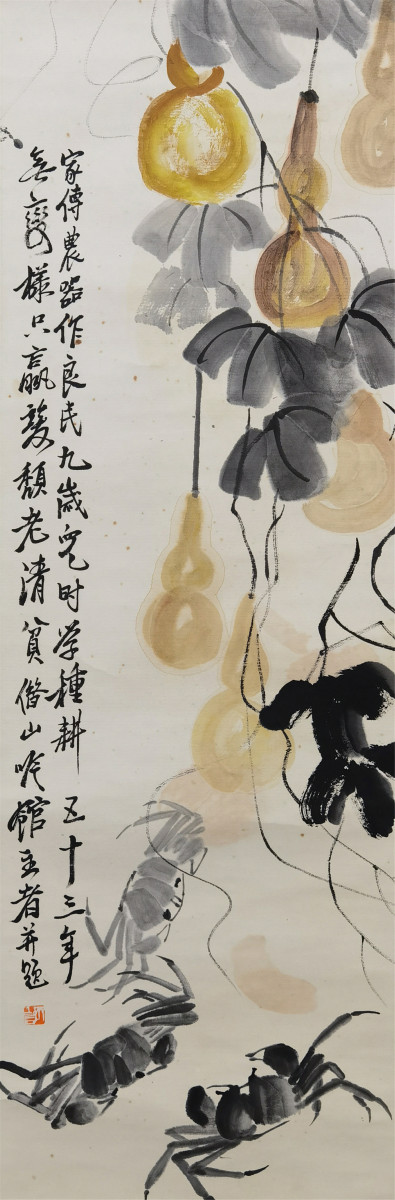 家傳農器作良民九歲兒时学種耕五十三年
無變樣只贏髮頹老清貧借山吟館主者并題